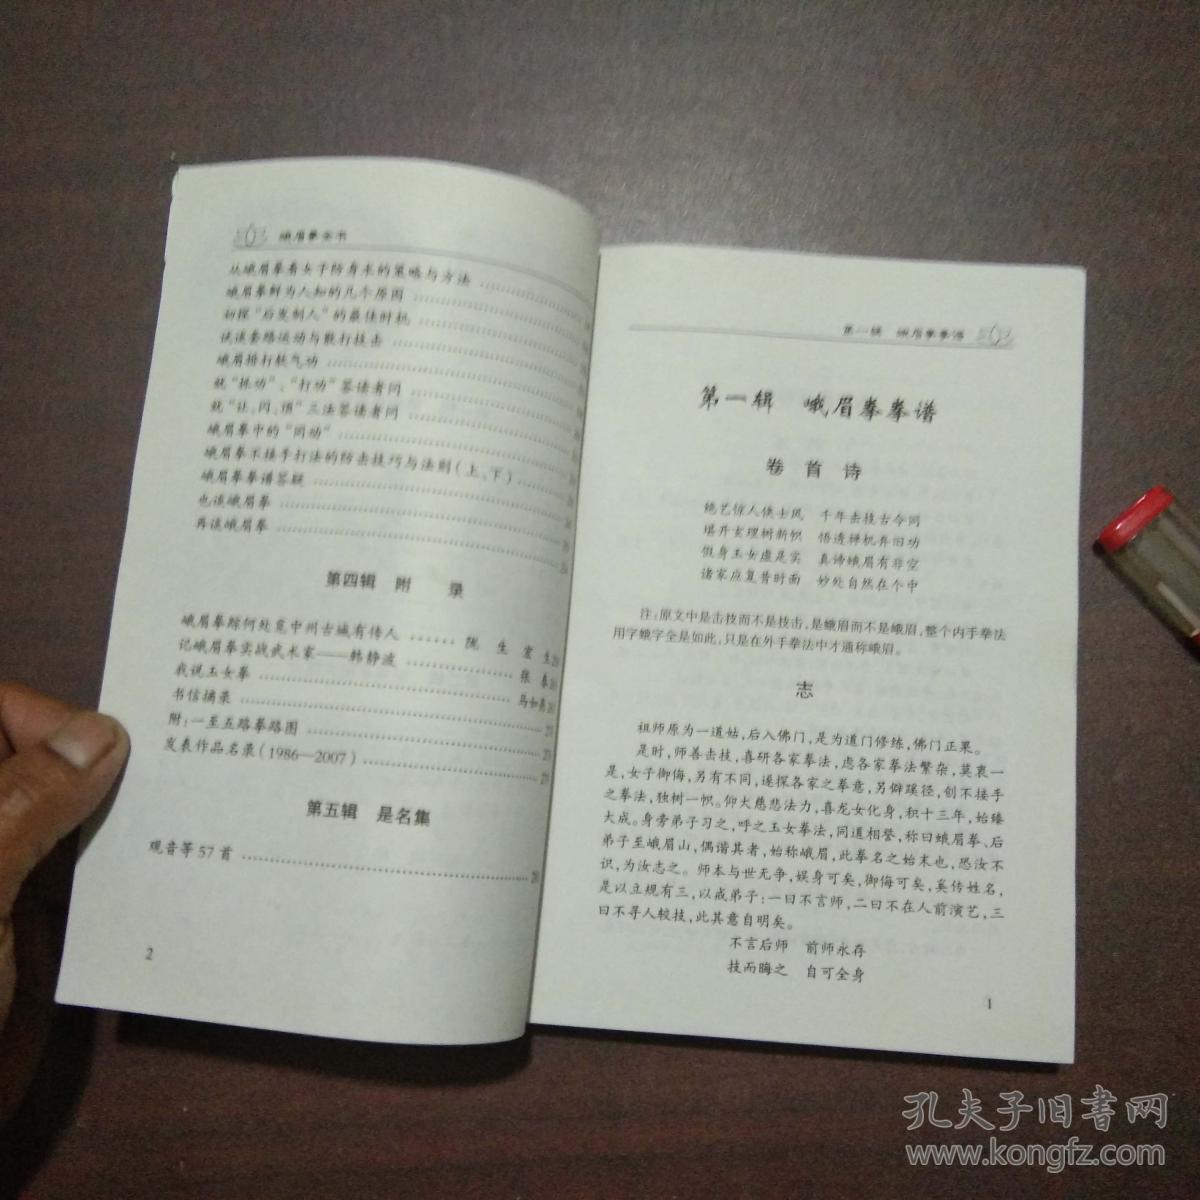 峨眉拳全书
从峨眉拳看女子防身术的策略与方法
峨眉拳鲜为人知的几个原因
初探“后发制人”的最佳时机
谈谈套路运动与散打技击
峨眉排打软气功
就“抹功”、“打功”答读者问
就“让、闪、顶”三法答读者问
峨眉拳中的“同功”
峨眉拳不接手打法的防击技巧与法则(上、下)
峨眉拳拳谱答疑
也谈峨眉拳
再谈峨眉拳
第四辑 附 录
峨眉拳踪何处觅中州古城有传人 陇 生 宏 生
记峨眉拳实战武术家——韩静波 张 春
我说玉女拳 马如
书信摘录
附:一至五路拳路图
发表作品名录(1986—2007)
第五辑 是名集
观音等57首
2
第一辑 峨眉拳拳谱
第一辑 峨眉拳拳谱
卷 首 诗
绝艺惊人侠士风 千年击技古今同
堪开玄理树新帜 悟透禅机弃旧功
假身玉女虚是实 真谛峨眉有非空
诸家应复昔时面 妙处自然在个中
注:原文中是击技而不是技击,是娥眉而不是峨眉,整个内手拳法
用字娥字全是如此,只是在外手拳法中才通称峨眉。
志
祖师原为一道姑,后入佛门,是为道门修练,佛门正果。
是时,师善击技,喜研各家拳法,虑各家拳法繁杂,莫衷一
是,女子御侮,另有不同,遂探各家之拳意,另僻蹊径,创不接手
之拳法,独树一帜。仰大慈悲法力,喜龙女化身,积十三年,始臻
大成。身旁弟子习之,呼之玉女拳法,同道相誉,称曰娥眉拳、后
弟子至峨眉山,偶谐其者,始称峨眉,此拳名之始末也,恐汝不
识,为汝志之。师本与世无争,娱身可矣,御侮可矣,奚传姓名,
是以立规有三,以戒弟子:一曰不言师,二曰不在人前演艺,三
曰不寻人较技,此其意自明矣。
不言后师 前师永存
技而晦之 自可全身
1
孔夫子旧书网
www.kongfz.com